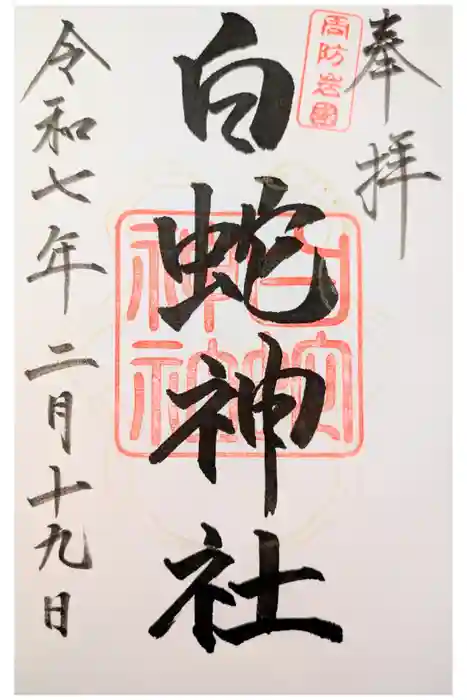 奉拝
周防岩國
白蛇神社
白蛇神社
令和七年二月十九日